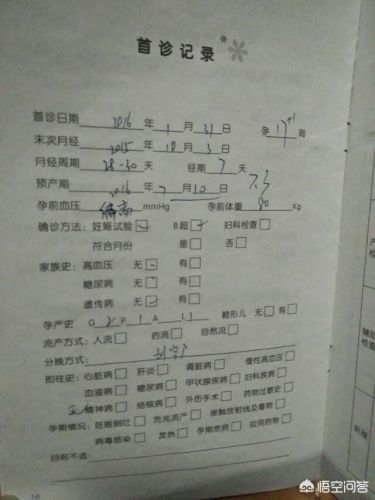 首诊记录
首诊日期 2016 年 1 月 31 日 孕 17+1 周
末次月经 2015 年 10 月 3 日
月经周期 28-30 天 经期 7 天
预产期 2016 年 7 月 10 日 7.3
孕前血压 偏高 mmHg 孕前体重 80 kg
确诊方法：妊娠试验☑ B超☑ 妇科检查□
符合月份 是□ 否□
家族史：高血压 无☑ 有□
糖尿病 无☑ 有□
遗传病 无☑ 有□
孕产史 G 2 P 1 A L 1 畸形儿 无□ 有□
流产方式：人流□ 药流□ 自然流□
分娩方式： 剖宫产
既往史：心脏病□ 肝炎□ 肾脏病□ 慢性高血压□
血液病□ 糖尿病□ 甲状腺疾病□ 妇科疾病□
无 精神病□ 结核病□ 外伤手术□ 药物过敏史□
孕期情况：妊娠剧吐□ 先兆流产□ 接触放射线及毒物□
病毒感染□ 发热□ 孕期患病□ 应用药物□
目前不适：
14
悟空问答